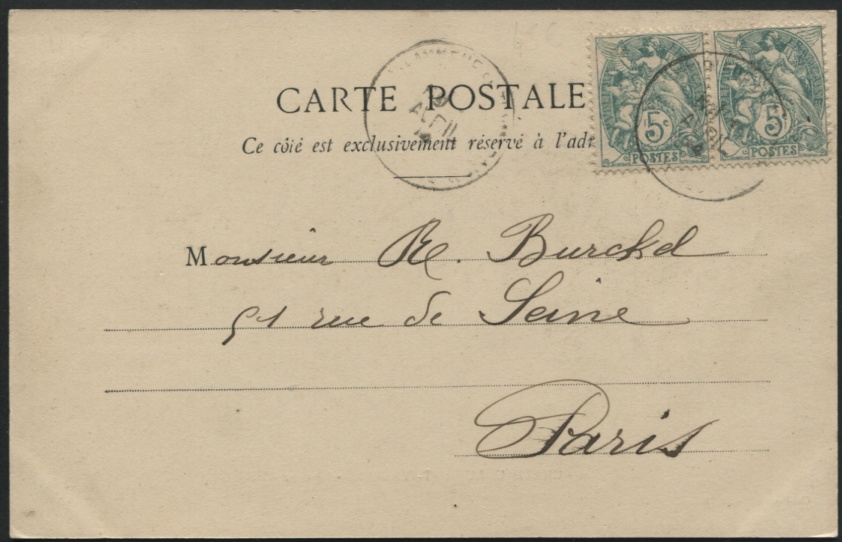 CARTE POSTALE
Ce côté est exclusivement réservé à l'adr
5c 5c
POSTES POSTES
AVRIL
Monsieur R. Burckel
51 rue de Seine
Paris